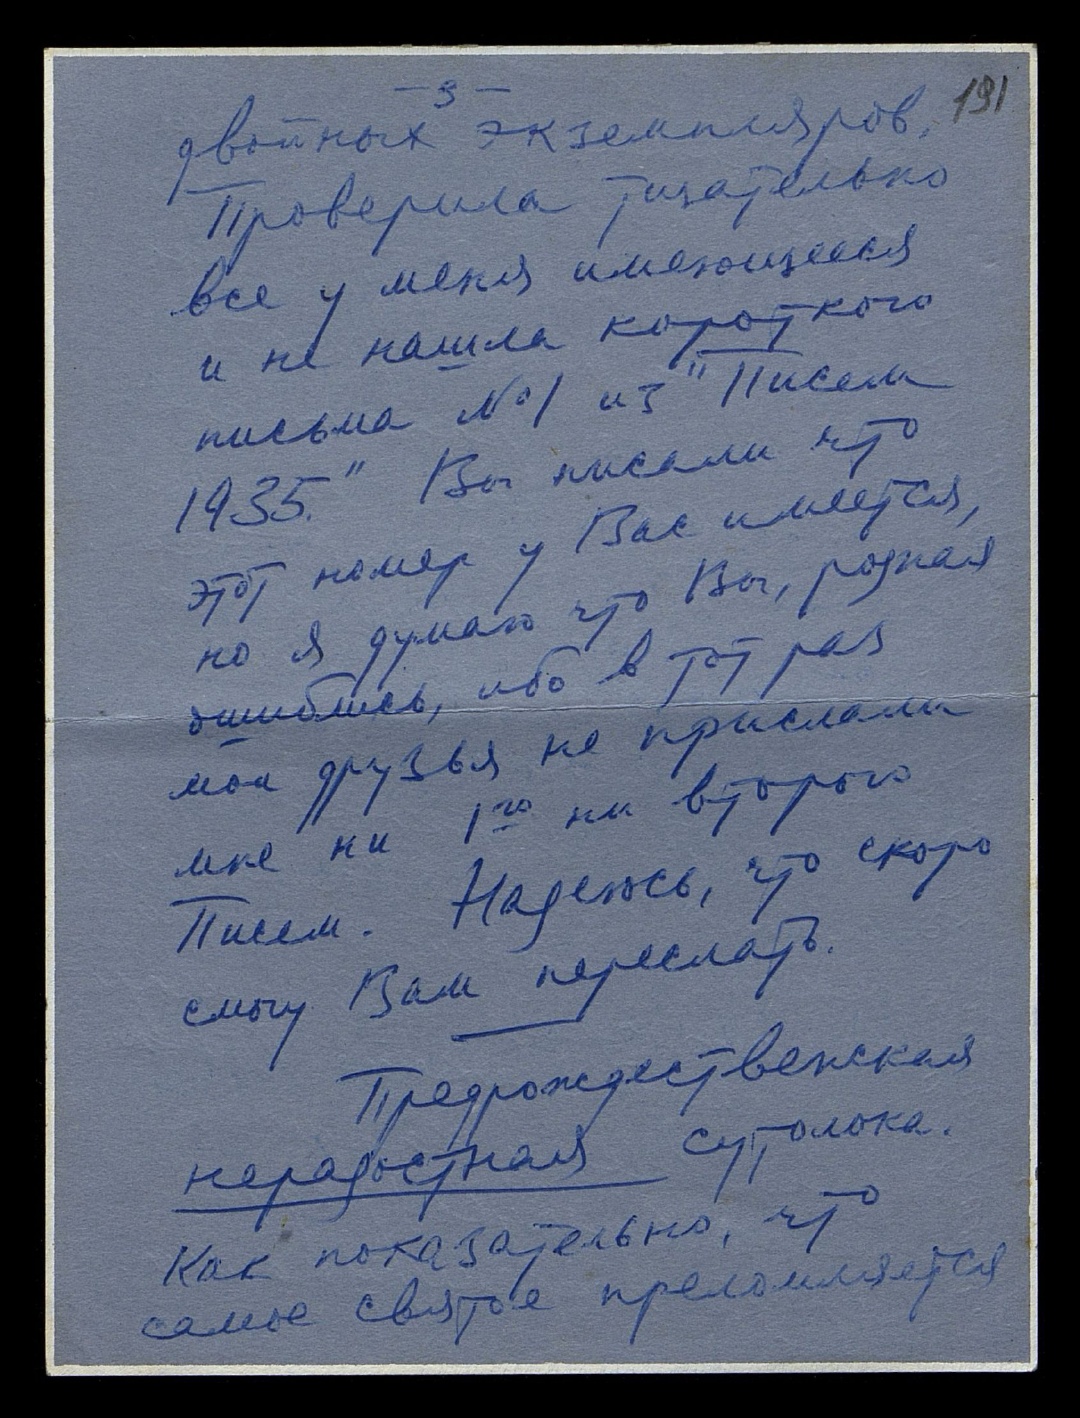 — 3 —
191
двойных экземпляров.
Проверила тщательно
все у меня имеющееся
и не нашла короткого
письма № 1 из "Писем
1935." Вы писали что
этот номер у Вас имеется,
но я думаю что Вы, родная
ошиблись, ибо в тот раз
мои друзья не прислали
мне ни 1го ни второго
Писем. Надеюсь, что скоро
смогу Вам переслать.
Предрождественская
нерадостная сутолока.
Как показательно, что
самое святое преломляется